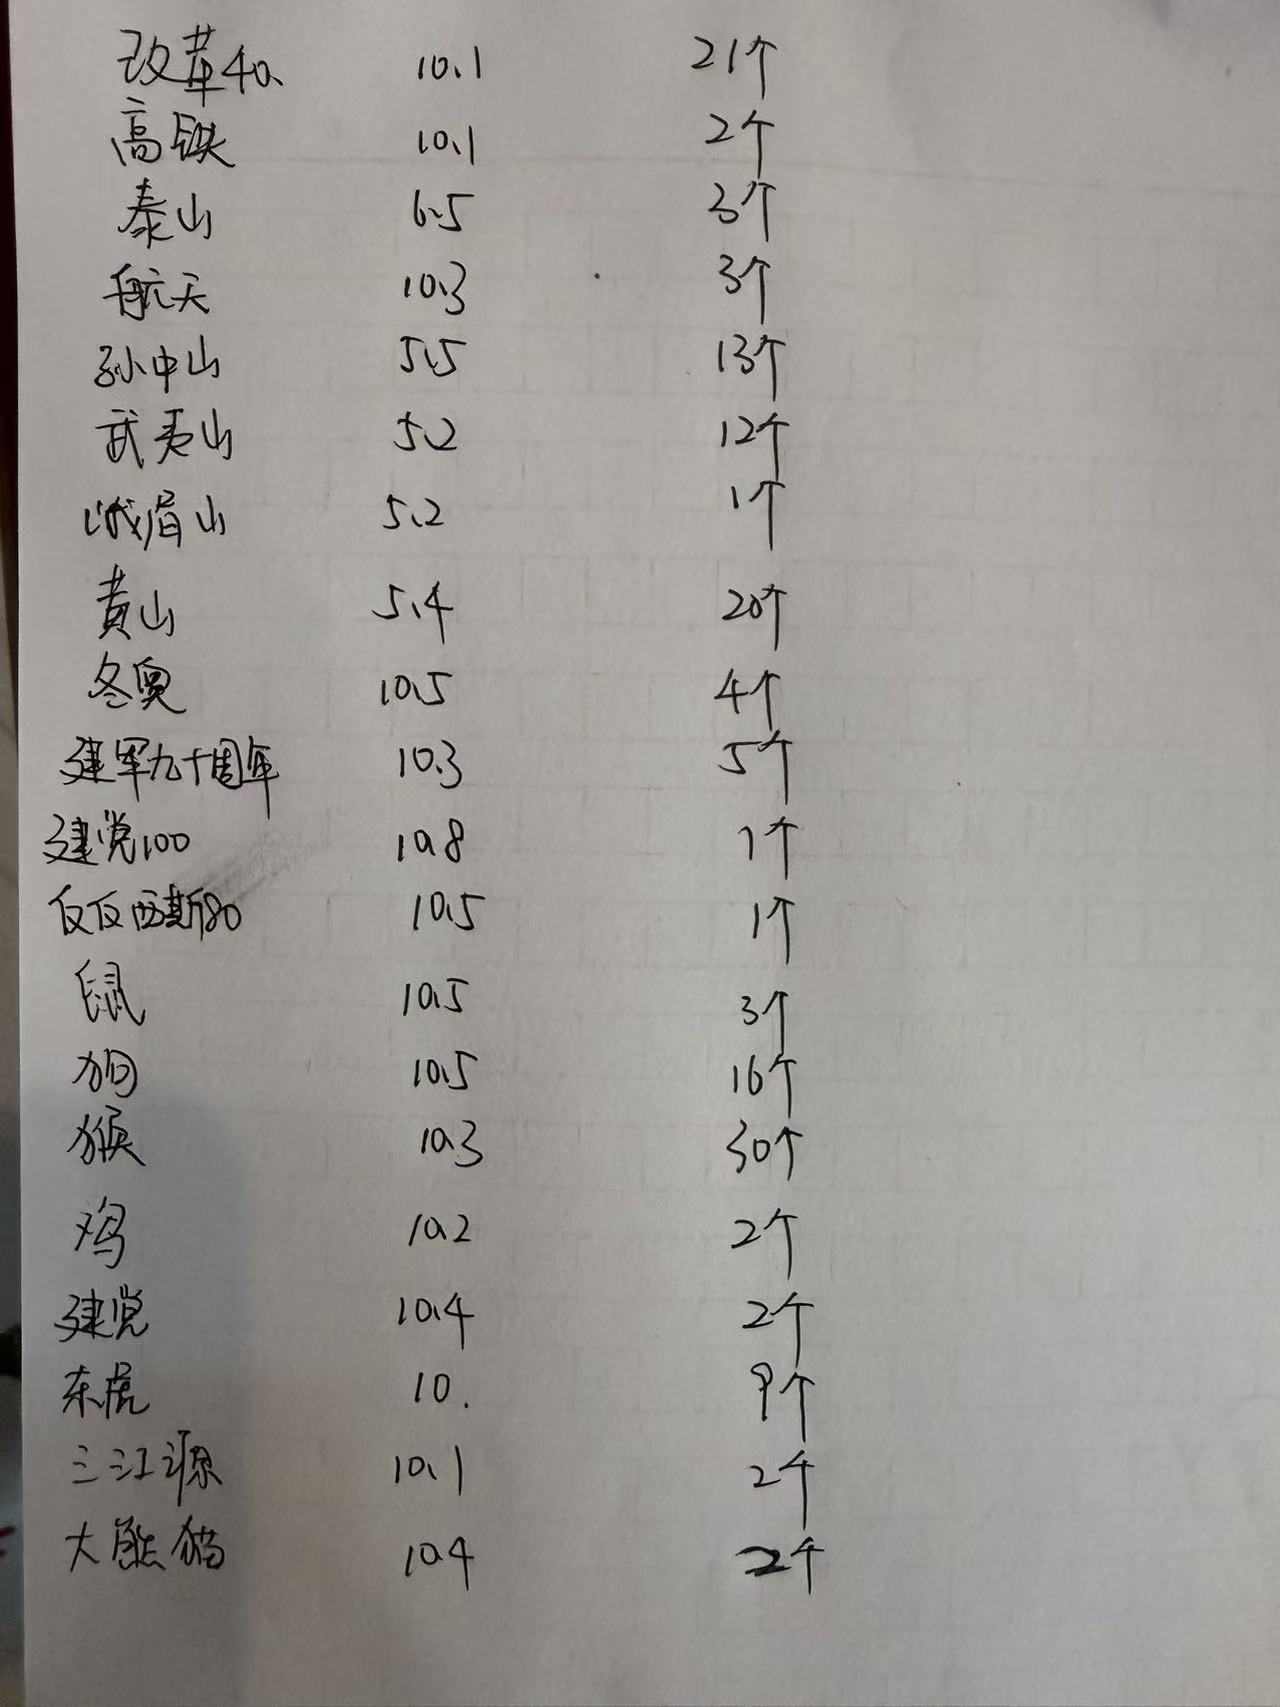 改革40、 10.1 21个
高铁 10.1 2个
泰山 6.5 3个
航天 10.3 3个
孙中山 5.5 13个
武夷山 5.2 12个
峨眉山 5.2 1个
黄山 5.4 20个
冬奥 10.5 4个
建军九十周年 10.3 5个
建党100 10.8 1个
反反西斯80 10.5 1个
鼠 10.5 3个
狗 10.5 16个
猴 10.3 30个
鸡 10.2 2个
建党 10.4 2个
东虎 10. 9个
三江源 10.1 2个
大熊猫 10.4 2个